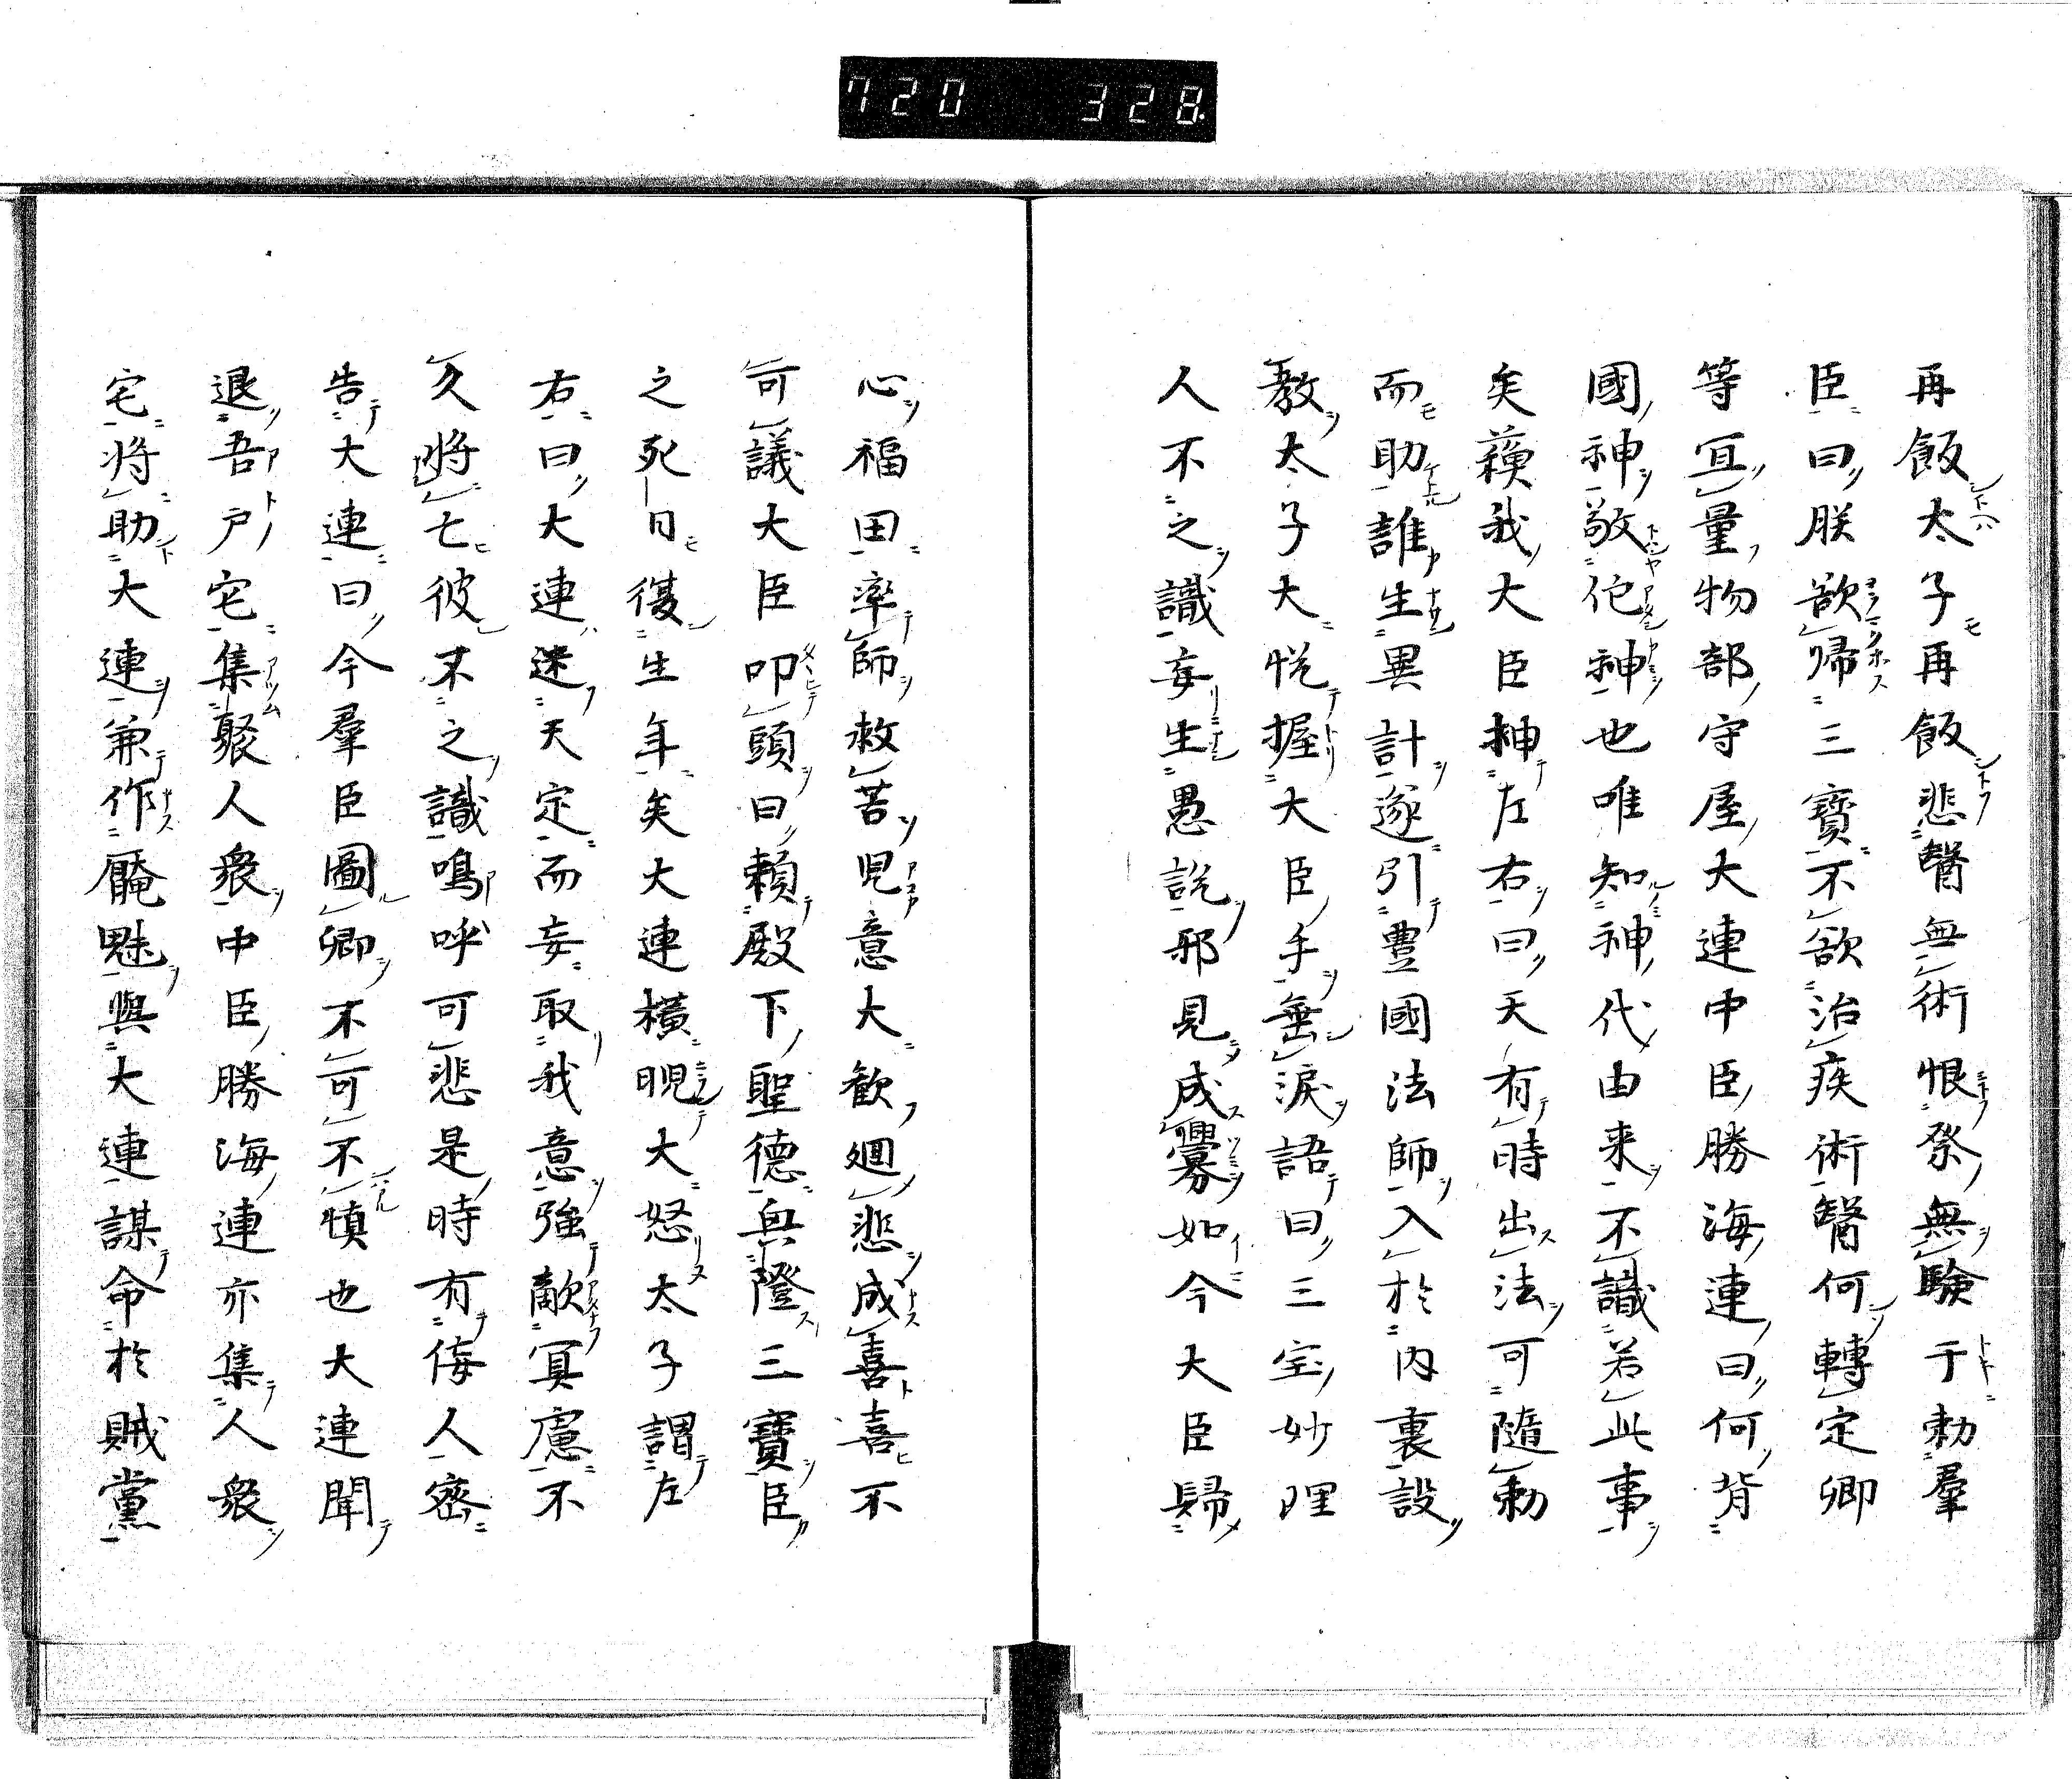 720 328
再飯太子再飯悲醫無術恨祭無験于勅羣
臣曰朕欲帰三寳不欲治疾術醫何轉定卿
等宜量物部守屋大連中臣勝海連曰何背
國神敬佗神也唯知神代由来不識若此事
矣蘓我大臣抻左右曰天有時出法可隨勅
而助誰生異計遂引豊國法師入於内裏設
教太子大悦握大臣手垂涙語曰三宝妙理
人不之識妄生愚説邪見成爨如今大臣歸
心福田率師救苦児意大歓廻悲成喜喜不
可議大臣叩頭曰頼殿下聖徳興隆三寳臣
之死日復生年矣大連横睨大怒太子謂左
右曰大連迷天定而妄取我意強敵冥慮不
久将亡彼不之識嗚呼可悲是時有侮人密
告大連曰今羣臣圖卿不可不慎也大連聞
退吾戸宅集聚人衆中臣勝海連亦集人衆
宅将助大連兼作魘魅與大連謀命於賊黨